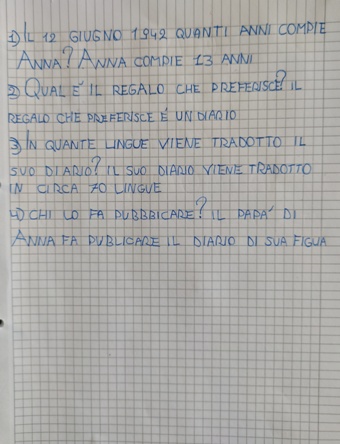 1) IL 12 GIUGNO 1942 QUANTI ANNI COMPIE
ANNA? ANNA COMPIE 13 ANNI
2) QUAL E' IL REGALO CHE PREFERISCE? IL
REGALO CHE PREFERISCE É UN DIARIO
3) IN QUANTE LINGUE VIENE TRADOTTO IL
SUO DIARIO? IL SUO DIARIO VIENE TRADOTTO
IN CIRCA 70 LINGUE
4) CHI LO FA PUBBBICARE? IL PAPA' DI
ANNA FA PUBLICARE IL DIARIO DI SUA FIGLIA